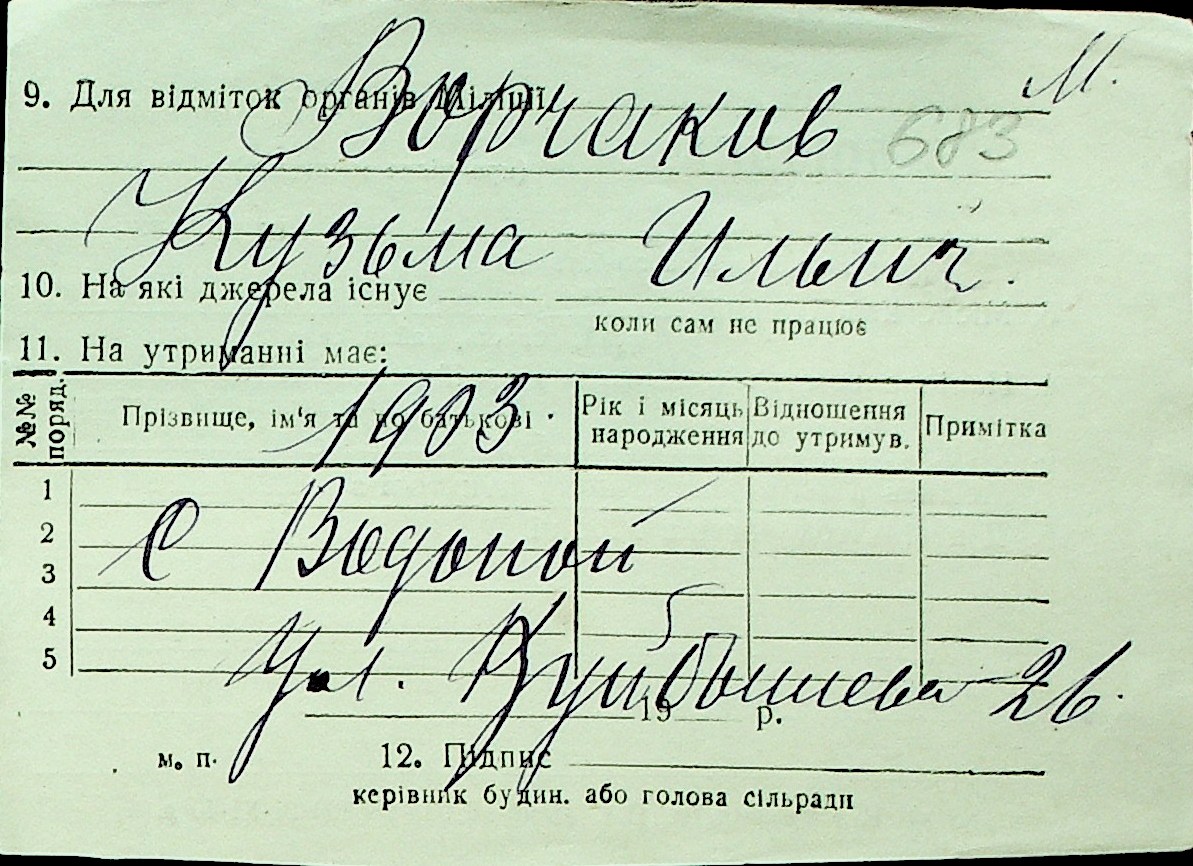 М.
9. Для відміток органів Міліції
Ворчаков 683
Кузьма Ильич.
10. На які джерела існує
коли сам не працює
11. На утриманні має:
№№ поряд. Прізвище, ім'я та по батькові Рік і місяць народження Відношення до утримув. Примітка
1903.
1
2
с Водопой
3
4
5
ул. Куйбышева 26.
19 р.
м. п. 12. Підпис
керівник будин. або голова сільради